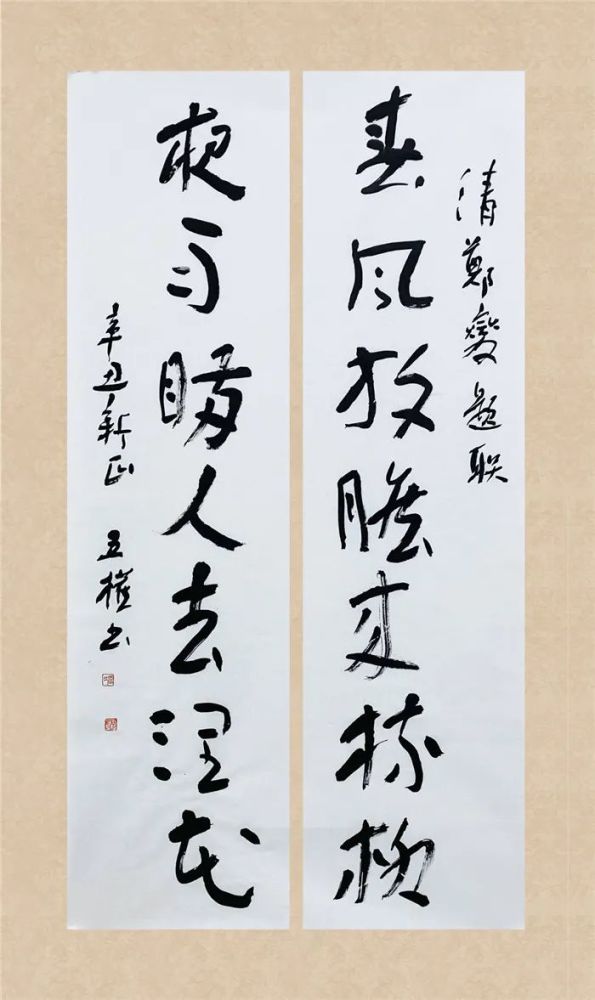 清鄭燮题联
春风放膽来梳柳
夜雨瞒人去润花
辛丑新正
书